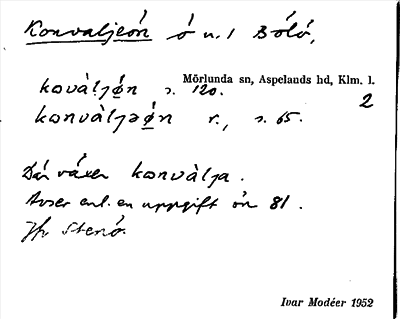 Konvaljeön ö n. 1 Bölö,
Mörlunda sn, Aspelands hd, Klm. l.
kovàljǿn s. 120.
2
konvàljəǿn r., s. 65.
Där växer konvàlja.
Avser enl. en uppgift ön 81.
Jfr Stenö.
Ivar Modéer 1952